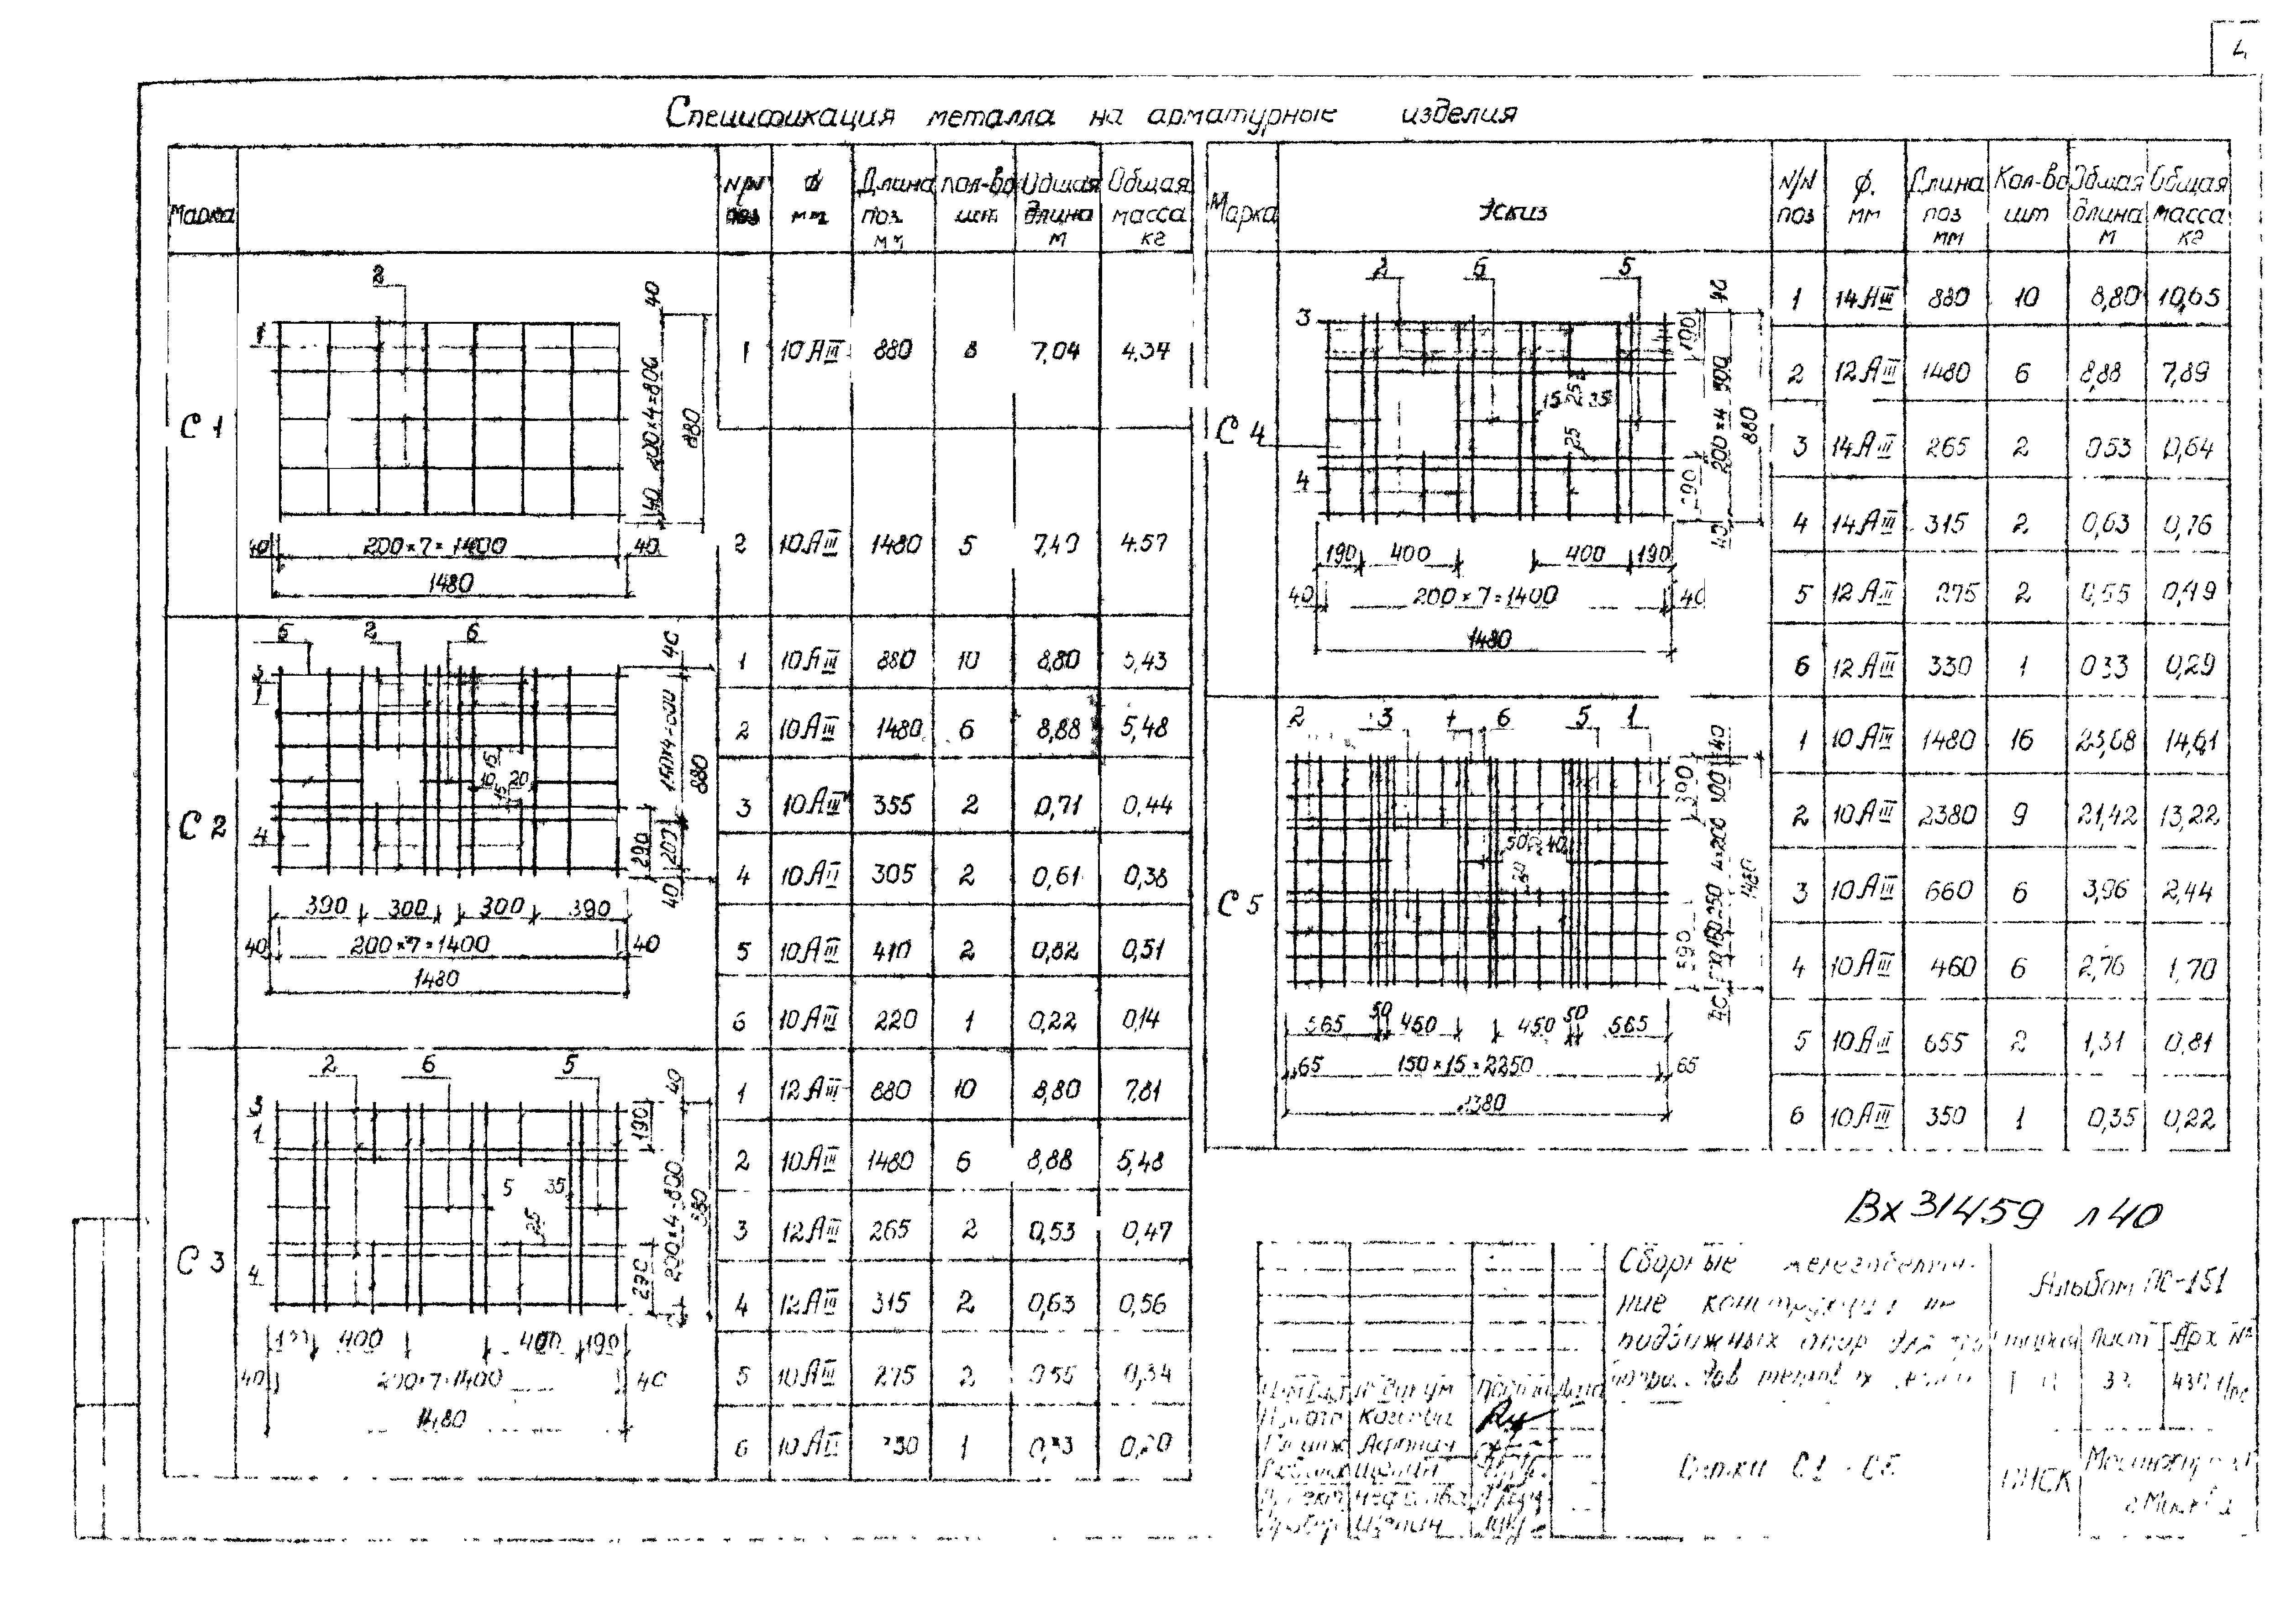 4
Спецификация металла на арматурные изделия
Марка
N/N поз
ф мм
Длина поз мм
кол-во шт
Общая длина м
Общая масса кг
С 1
2
1
40
200×4=800
880
40
40
200×7=1400
40
1480
1 10АIII 880 8 7,04 4,34
2 10АIII 1480 5 7,40 4.57
С 2
5 2 6
3
1
4
15
10 20
15
40
150×4=600
880
290
200
40
390 300 300 390
40
200×7=1400
40
1480
1 10АIII 880 10 8,80 5,43
2 10АIII 1480 6 8,88 5,48
3 10АIII 355 2 0,71 0,44
4 10АIII 305 2 0,61 0,38
5 10АIII 410 2 0,82 0,51
6 10АIII 220 1 0,22 0,14
С 3
2 6 5
3
1
4
5 35
25
190
40
200×4=800
290
400 400 190
40
200×7=1400
40
1480
1 12АIII 880 10 8,80 7,81
2 10АIII 1480 6 8,88 5,48
3 12АIII 265 2 0,53 0,47
4 12АIII 315 2 0,63 0,56
5 10АIII 275 2 0,55 0,34
6 10АIII 330 1 0,33 0,20
Марка
Эскиз
N/N поз
ф. мм
Длина поз мм
Кол-во шт
Общая длина м
Общая масса кг
С 4
2 6 5
3
4
15 25 35
25
40
200×4
880
40
190 400 400 190
40
200×7=1400
40
1480
1 14АIII 880 10 8,80 10,65
2 12АIII 1480 6 8,88 7,89
3 14АIII 265 2 0,53 0,64
4 14АIII 315 2 0,63 0,76
5 12АIII 275 2 0,55 0,49
6 12АIII 330 1 0,33 0,29
С 5
2 3 4 6 5 1
50 40
40
4×200
590
565 50 450 450 50 565
65
150×15=2250
65
2380
1 10АIII 1480 16 23,68 14,61
2 10АIII 2380 9 21,42 13,22
3 10АIII 660 6 3,96 2,44
4 10АIII 460 6 2,76 1,70
5 10АIII 655 2 1,31 0,81
6 10АIII 350 1 0,35 0,22
Вх 31459 л 40
Сборные
подвижных опор для
Альбом ПС-151
Лист
Арх №
Сетки С1 - С5
г. Москва